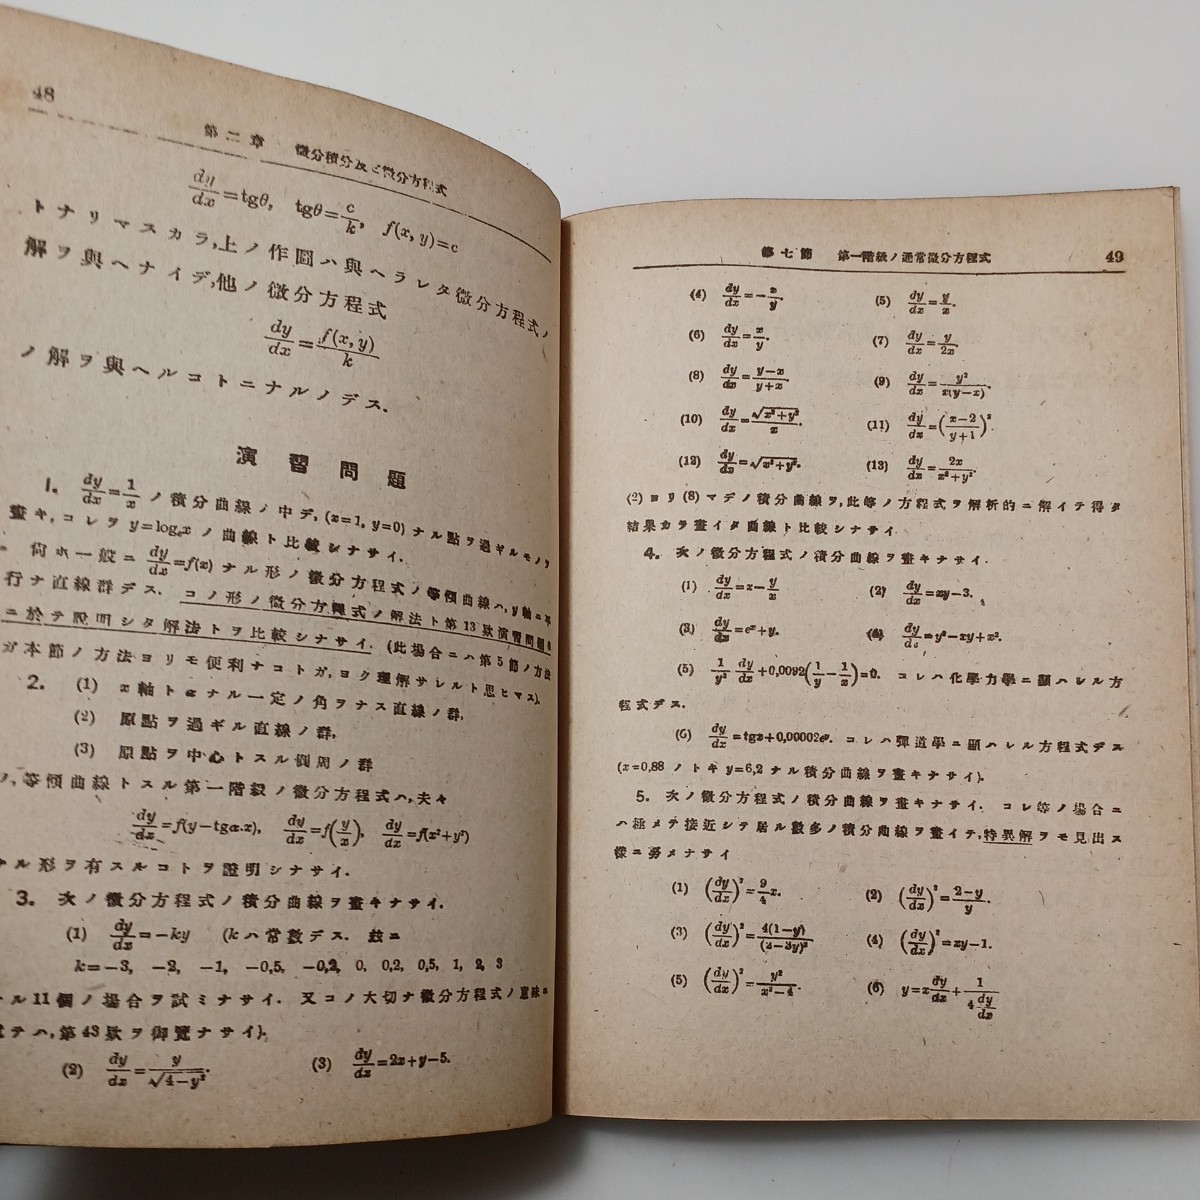 48
第二章 微分積分及ビ微分方程式
dy/dx=tgθ, tgθ=c/k, f(x, y)=c
トナリマスカラ,上ノ作圖ハ與ヘラレタ微分方程式ノ
解ヲ與ヘナイデ,他ノ微分方程式
dy/dx=f(x, y)/k
ノ解ヲ與ヘルコトニナルノデス.
演習問題
1. dy/dx=1/x ノ積分曲線ノ中デ, (x=1, y=0) ナル點ヲ過ギルモノヲ
畫キ, コレヲ y=logₑx ノ曲線ト比較シナサイ.
尙ホ一般ニ dy/dx=f(x) ナル形ノ微分方程式ノ等傾曲線ハ, y軸ニ平
行ナ直線群デス. コノ形ノ微分方程式ノ解法ト第13欵演習問題
ニ於テ說明シタ解法トヲ比較シナサイ. (此場合ニハ第5節ノ方法
ガ本節ノ方法ヨリモ便利ナコトガ,ヨク理解サレルト思ヒマス).
2. (1) x軸トαナル一定ノ角ヲナス直線ノ群,
(2) 原點ヲ過ギル直線ノ群,
(3) 原點ヲ中心トスル圓周ノ群
ヲ,等傾曲線トスル第一階級ノ微分方程式ハ,夫々
dy/dx=f(y−tgα.x), dy/dx=f(y/x), dy/dx=f(x²+y²)
ナル形ヲ有スルコトヲ證明シナサイ.
3. 次ノ微分方程式ノ積分曲線ヲ畫キナサイ.
(1) dy/dx=−ky (kハ常數デス. 玆ニ
k=−3, −2, −1, −0,5, −0,2, 0, 0,2, 0,5, 1, 2, 3
ナル11個ノ場合ヲ試ミナサイ. 又コノ大切ナ微分方程式ノ意味ニ
就テハ,第43欵ヲ御覽ナサイ).
(2) dy/dx=y/√(4−y²). (3) dy/dx=2x+y−5.
第七節 第一階級ノ通常微分方程式 49
(4) dy/dx=−x/y. (5) dy/dx=y/x.
(6) dy/dx=x/y. (7) dy/dx=y/2x.
(8) dy/dx=(y−x)/(y+x). (9) dy/dx=y²/x(y−x).
(10) dy/dx=√(x²+y²)/x. (11) dy/dx=((x−2)/(y+1))².
(12) dy/dx=√(x²+y²). (13) dy/dx=2x/(x²+y²).
(2) ヨリ (8) マデノ積分曲線ヲ,此等ノ方程式ヲ解析的ニ解イテ得タ
結果カラ畫イタ曲線ト比較シナサイ.
4. 次ノ微分方程式ノ積分曲線ヲ畫キナサイ.
(1) dy/dx=x−y/x (2) dy/dx=xy−3.
(3) dy/dx=eˣ+y. (4) dy/dx=y²−xy+x².
(5) 1/y² dy/dx+0,0092(1/y−1/x)=0. コレハ化學力學ニ顯ハレル方
程式デス.
(6) dy/dx=tgx+0,00002eʸ. コレハ彈道學ニ顯ハレル方程式デス
(x=0,88 ノトキ y=6,2 ナル積分曲線ヲ畫キナサイ).
5. 次ノ微分方程式ノ積分曲線ヲ畫キナサイ. コレ等ノ場合ニ
ハ極メテ接近シテ居ル數多ノ積分曲線ヲ畫イテ,特異解ヲモ見出ス
樣ニ努メナサイ
(1) (dy/dx)²=9/4 x. (2) (dy/dx)²=(2−y)/y.
(3) (dy/dx)²=4(1−y)/(2−3y)² (4) (dy/dx)²=xy−1.
(5) (dy/dx)²=y²/(x²−4). (6) y=x dy/dx+1/(4 dy/dx)